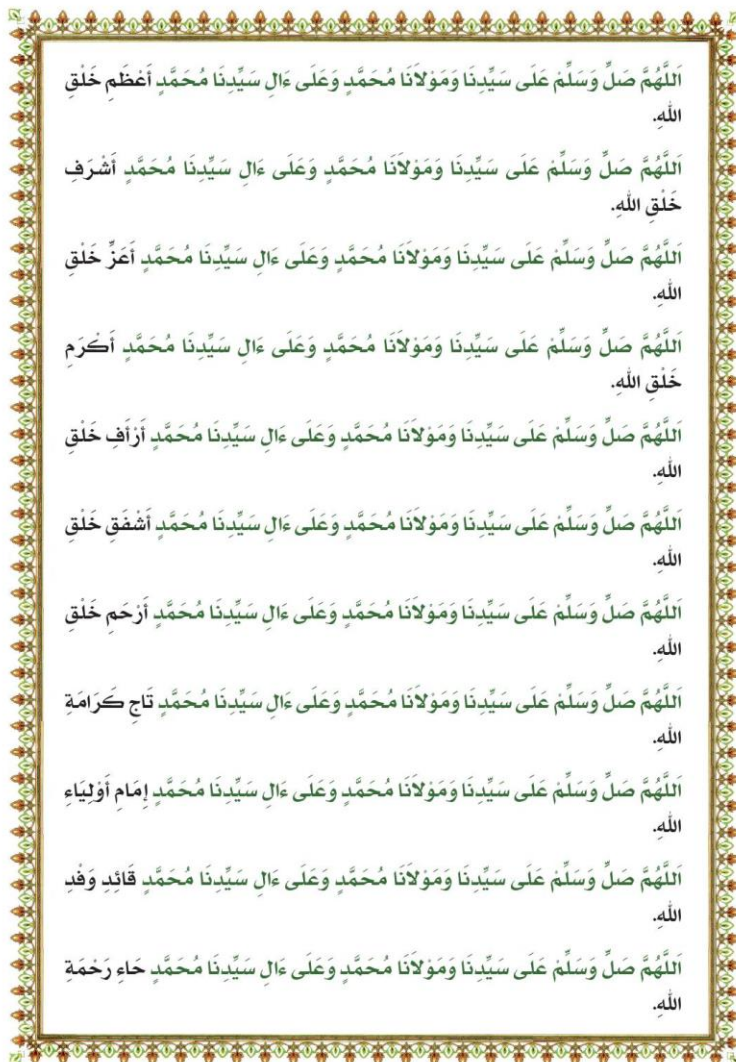 اَللَّهُمَّ صَلِّ وَسَلِّمْ عَلَى سَيِّدِنَا وَمَوْلَانَا مُحَمَّدٍ وَعَلَى ءَالِ سَيِّدِنَا مُحَمَّدٍ أَعْظَمِ خَلْقِ
اللهِ.
اَللَّهُمَّ صَلِّ وَسَلِّمْ عَلَى سَيِّدِنَا وَمَوْلَانَا مُحَمَّدٍ وَعَلَى ءَالِ سَيِّدِنَا مُحَمَّدٍ أَشْرَفِ
خَلْقِ اللهِ.
اَللَّهُمَّ صَلِّ وَسَلِّمْ عَلَى سَيِّدِنَا وَمَوْلَانَا مُحَمَّدٍ وَعَلَى ءَالِ سَيِّدِنَا مُحَمَّدٍ أَعَزِّ خَلْقِ
اللهِ.
اَللَّهُمَّ صَلِّ وَسَلِّمْ عَلَى سَيِّدِنَا وَمَوْلَانَا مُحَمَّدٍ وَعَلَى ءَالِ سَيِّدِنَا مُحَمَّدٍ أَكْرَمِ
خَلْقِ اللهِ.
اَللَّهُمَّ صَلِّ وَسَلِّمْ عَلَى سَيِّدِنَا وَمَوْلَانَا مُحَمَّدٍ وَعَلَى ءَالِ سَيِّدِنَا مُحَمَّدٍ أَرْأَفِ خَلْقِ
اللهِ.
اَللَّهُمَّ صَلِّ وَسَلِّمْ عَلَى سَيِّدِنَا وَمَوْلَانَا مُحَمَّدٍ وَعَلَى ءَالِ سَيِّدِنَا مُحَمَّدٍ أَشْفَقِ خَلْقِ
اللهِ.
اَللَّهُمَّ صَلِّ وَسَلِّمْ عَلَى سَيِّدِنَا وَمَوْلَانَا مُحَمَّدٍ وَعَلَى ءَالِ سَيِّدِنَا مُحَمَّدٍ أَرْحَمِ خَلْقِ
اللهِ.
اَللَّهُمَّ صَلِّ وَسَلِّمْ عَلَى سَيِّدِنَا وَمَوْلَانَا مُحَمَّدٍ وَعَلَى ءَالِ سَيِّدِنَا مُحَمَّدٍ تَاجِ كَرَامَةِ
اللهِ.
اَللَّهُمَّ صَلِّ وَسَلِّمْ عَلَى سَيِّدِنَا وَمَوْلَانَا مُحَمَّدٍ وَعَلَى ءَالِ سَيِّدِنَا مُحَمَّدٍ إِمَامِ أَوْلِيَاءِ
اللهِ.
اَللَّهُمَّ صَلِّ وَسَلِّمْ عَلَى سَيِّدِنَا وَمَوْلَانَا مُحَمَّدٍ وَعَلَى ءَالِ سَيِّدِنَا مُحَمَّدٍ قَائِدِ وَفْدِ
اللهِ.
اَللَّهُمَّ صَلِّ وَسَلِّمْ عَلَى سَيِّدِنَا وَمَوْلَانَا مُحَمَّدٍ وَعَلَى ءَالِ سَيِّدِنَا مُحَمَّدٍ حَاءِ رَحْمَةِ
اللهِ.